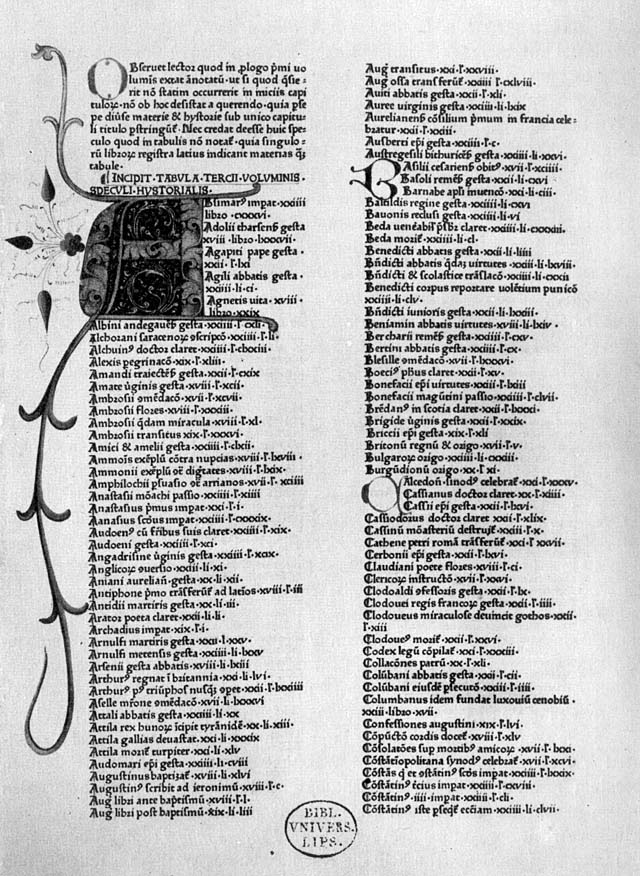 Obseruet lector quod in ꝓlogo pͥmi uo
lumīs extat ānotatū. ut si quod q̄sie-
rit nō statim occurrerit in iniciis capi
tuloꝝ. nō ob hoc desistat a querendo. quia pse
pe diūse materie & hystorie sub unico capitu-
li titulo pstringūꝰ. Nec credat deesse huic spe-
culo quod in tabulis nō notaꝰ. quia singulo-
rū libroꝝ registra latius indicant materias
tabule.
INCIPIT TABVLA TERCII VOLVMINIS
SPECVLI HYSTORIALIS.
impat. xxiiii
libro. cxxxvi.
Adolii tharsenꝭ gesta
xviii. libro. lxxxvii.
Agapiti pape gesta.
xxii. ⁊. lxi
Agili abbatis gesta.
xxiiii. li. ci.
Agnetis uita. xviii.
libro. xxix
Albini andegauēꝭ gesta. xxiii. ⁊. cxli.
Alchorani saracenoꝝ ꝯscripcō. xxiiii. ⁊. li.
Alchuinꝰ doctor claret. xxiiii. ⁊.
Alexis pegrinacō. xix. ⁊. xliii.
Amandi traiectēꝭ gesta. xxii. ⁊. cxix
Amate ūginis gesta. xviii. ⁊. xcii.
Ambrosii ꝯmēdacō. xvii. ⁊. xcvii.
Ambrosii flores. xviii. ⁊. xxxiii.
Ambrosii q̄dam miracula. xviii. ⁊. xl.
Ambrosii transitus xix. ⁊. xxxvi.
Amici & amelii gesta. xxiiii. ⁊.
Ammōis exēplū cōtra nupcias. xviii. ⁊. lxviii.
Ammonii exēplū dig̃tates. xviii. ⁊. lxix.
Amphilochii psuasio arrianos. xvii. ⁊.
Anastasii mōachi passio. xxiiii. ⁊. xiiii
Anastasius pͥmus impat. xxi. ⁊. i.
Anasius scd̄us impat. xxiiii. ⁊. cxxxix.
Audoenꝰ cū fr̄ibus suis claret. xxiiii. ⁊. xix.
Audoeni gesta. xxiiii. ⁊. xci.
Angadrisine ūginis gesta. xxiiii. ⁊. xcix.
Anglicoꝝ ꝯuersio. xxii. li. xi.
Aniani aurelianꝭ. gesta. xx. li. xii.
Antiphone pͥmo trāsferūꝰ ad latīos. xviii. ⁊. iii
Antidii martiris gesta. xx. li. iii.
Arator poeta claret. xxii. li. li.
Archadius impat. xix. ⁊. i.
Arnulfi martiris gesta. xxii. ⁊. xxv.
Arnulfi metensis gesta. xxiiii. li. lxxv
Arsenii gesta abbatis. xviii. li. lxiii
Arthurꝰ regnat ī britannia. xxi. li. lvi.
Arthurꝰ pꝰ triūphos nusq̄ ꝯpet. xxii. ⁊. lxxiiii
Aselle mrone ꝯmēdacō. xvii. li. lxxxvi
Attali abbatis gesta. xxiiii. li. xx
Attila rex hunoꝝ īcipit tyrānidē. xx. li. xiii.
Attila gallias deuastat. xxi. li. xxxix
Attila moriꝰ turpiter. xxi. li. xlv
Audomari epī gesta. xxiiii. li. cviii
Augustinus baptizaꝰ. xviii. li. xlvi
Augustinꝰ scribit ad ieronimū. xviii. ⁊. c.
Augꝰ libri ante baptismū. xviii. ⁊. l.
Augꝰ libri post baptismū. xix. li. liii
Augꝰ transitus. xxi. ⁊. xxviii.
Augꝰ ossa transferūꝰ xxiiii. ⁊. cxlviii.
Auiti abbatis gesta. xxii. ⁊. xli.
Auree uirginis gesta. xxiiii. li. lxix
Aurelianenꝭ cōsilium pͥmum in francia cele-
bratur. xxii. ⁊. xxiii.
Ausberti epī gesta. xxiiii. ⁊. c.
Austregesili bithuricēꝭ gesta. xxiiii. li. xxvi.
Basilii cesariensꝭ obiꝰ. xvii. ⁊.
Basoli remēꝭ gesta. xxiiii. li. xvi.
Barnabe apli muencō. xxi. li. ciii.
Batildis regine gesta. xxiiii. li. cxvi
Bauonis reclusi gesta. xxiiii. li. vi
Beda uenēabił pͥsbr̄ claret. xxiiii. li.
Beda moriꝰ. xxiiii. li. cl.
Benedicti abbatis gesta. xxii. li.
Bn̄dicti abbatis q̄daꝫ uirtutes. xxiii. li. lxviii.
Bn̄dicti & scolastice trāslacō. xxiiii. li. cxxii
Benedicti corpus reportare uolētium punicō
xxiiii. li. clv.
Bn̄dicti iunioris gesta. xxii. li. lxxiii.
Beniamin abbatis uirtutes. xviii. li. lxiv.
Bercharii remēꝭ gesta. xxiiii. ⁊. cxv.
Bertini abbatis gesta. xxiiii. ⁊. cx.
Blesille ꝯmēdacō. xvii. ⁊. lxxxv.
Boeciꝰ pħus claret. xxii. ⁊. xv.
Bonefacii epī uirtutes. xxiii. ⁊. lxiii
Bonefacii magūtini passio. xxiiii. ⁊. clvii.
Brēdanꝰ in scotia claret. xxii. ⁊. lxxxi.
Brigide ūginis gesta. xxii. ⁊. xxix.
Briccii epī gesta. xix. ⁊. xli
Britonū regnū & origo. xvii. ⁊. v.
Bulgaroꝝ origo. xxiiii. li. cxxiii.
Burgūdionū origo. xx. ⁊. xi.
Calcedonꝭ sinodꝰ celebraꝰ. xxi. ⁊. xxxv.
Cassianus doctor claret. xx. ⁊. xiiii.
Cassii epī gesta. xxii. ⁊. lxvi.
Cassiodorus doctor claret xxii. ⁊. xlix.
Cassinū mōasteriū destruiꝰ. xxiii. ⁊. x.
Cathene petri romā trāsferūꝰ xxi. ⁊. xxvii.
Cerbonii epī gesta. xxii. ⁊. lxvi.
Claudiani poete flores. xviii. ⁊. ci.
Clericoꝝ instructō. xvii. ⁊. xxvi.
Clodoaldi ꝯfessoris gesta. xxii. ⁊. lx.
Clodouei regis francoꝝ gesta. xxii. ⁊. iiii.
Clodoueus miraculose deuincit gothos. xxii.
⁊. xiii
Clodoueꝰ moriꝰ. xxii. ⁊. xxvi.
Codex legū cōpilaꝰ. xxii. ⁊. xxxiii.
Collacōnes patrū. xx. ⁊. xli.
Colūbani abbatis gesta. xxii. ⁊. cii.
Colūbani eiusdē psecutō. xxiii. ⁊. iiii.
Columbanus idem fundat luxouiū cenobiū.
xxiii. libro. xvii.
Confessiones augustini xix. ⁊. lvi.
Cōpūctō cordis docetꝰ. xviii. ⁊. xlv.
Cōsolatōes sup mortibꝰ amicoꝝ. xvii. ⁊. lxxi.
Cōstātīopolitana synodꝰ celebraꝰ. xvii. ⁊. xcvi.
Cōstās q̄ et ꝯstātinꝰ scd̄s impat. xxiiii. ⁊. lxxix.
Cōstātinꝰ t̄cius impat. xxiiii. ⁊. cxviii.
Cōstātinꝰ. iiii. impat. xxiiii. ⁊. cli.
Cōstātinꝰ iste pseqꝰ ecc̄iam. xxiiii. li. clvii.
BIBL.
VNIVERS.
LIPS.